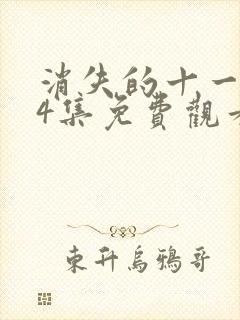 消失的十一
4集免費觀
東升烏鴉哥